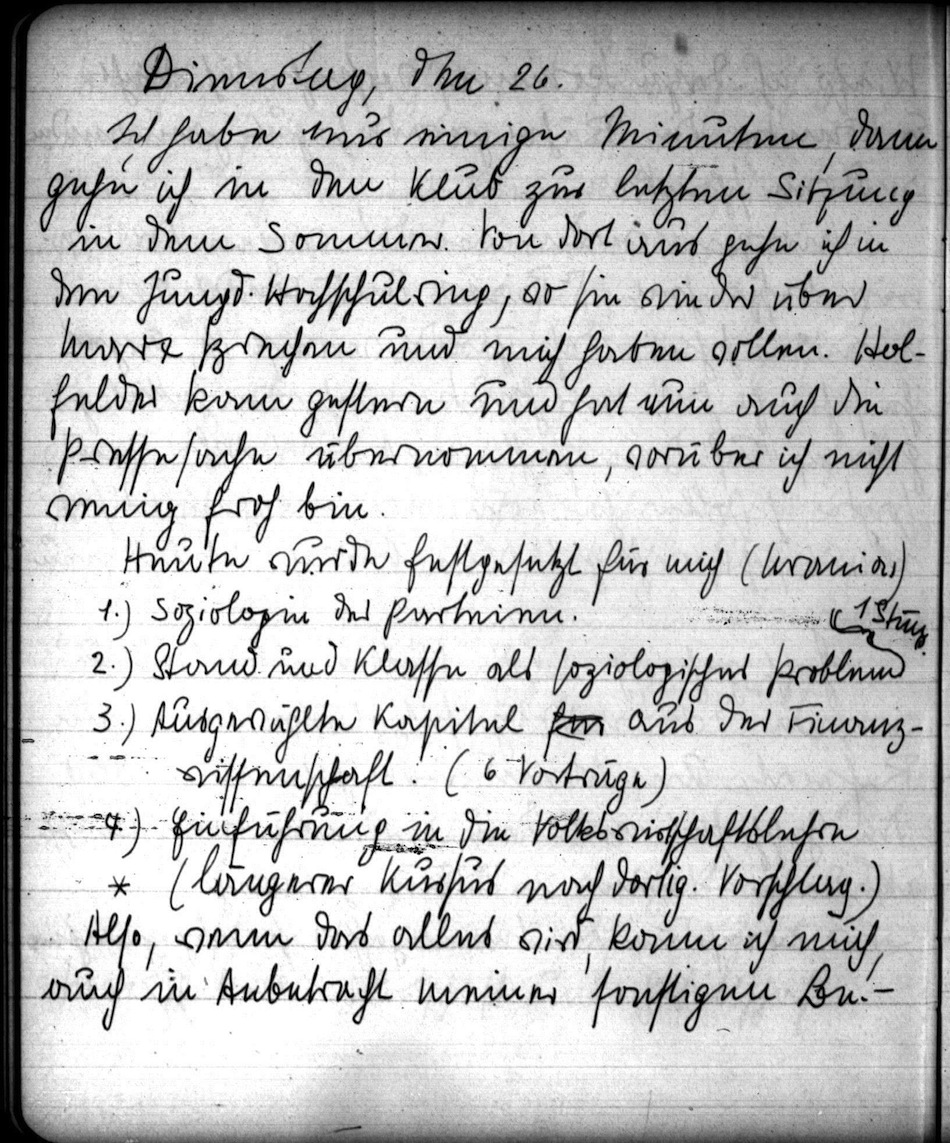 Dienstag, den 26.
Ich habe nur einige Minuten, dann
gehe ich in den Klub zur letzten Sitzung
in dem Sommer. Von dort aus gehe ich in
den Jungd. Hochschulring, wo sie wieder über
Marx sprechen und mich haben wollen. Hol-
felder kam gestern und hat nun auch die
Pressesache übernommen, worüber ich nicht
wenig froh bin.
Heute wurde festgesetzt für mich (Urania)
1.) Soziologie der Parteien.
1 Stun.
2.) Stand und Klasse als soziologisches Problem
3.) Ausgewählte Kapitel aus der Finanz-
wissenschaft. (6 Vorträge)
4.) Einführung in die Volkswirtschaftslehre
* (längerer Kursus nach dortig. Vorschlag.)
Also, wenn das alles wird, kann ich mich,
auch in Anbetracht meiner sonstigen Be.-